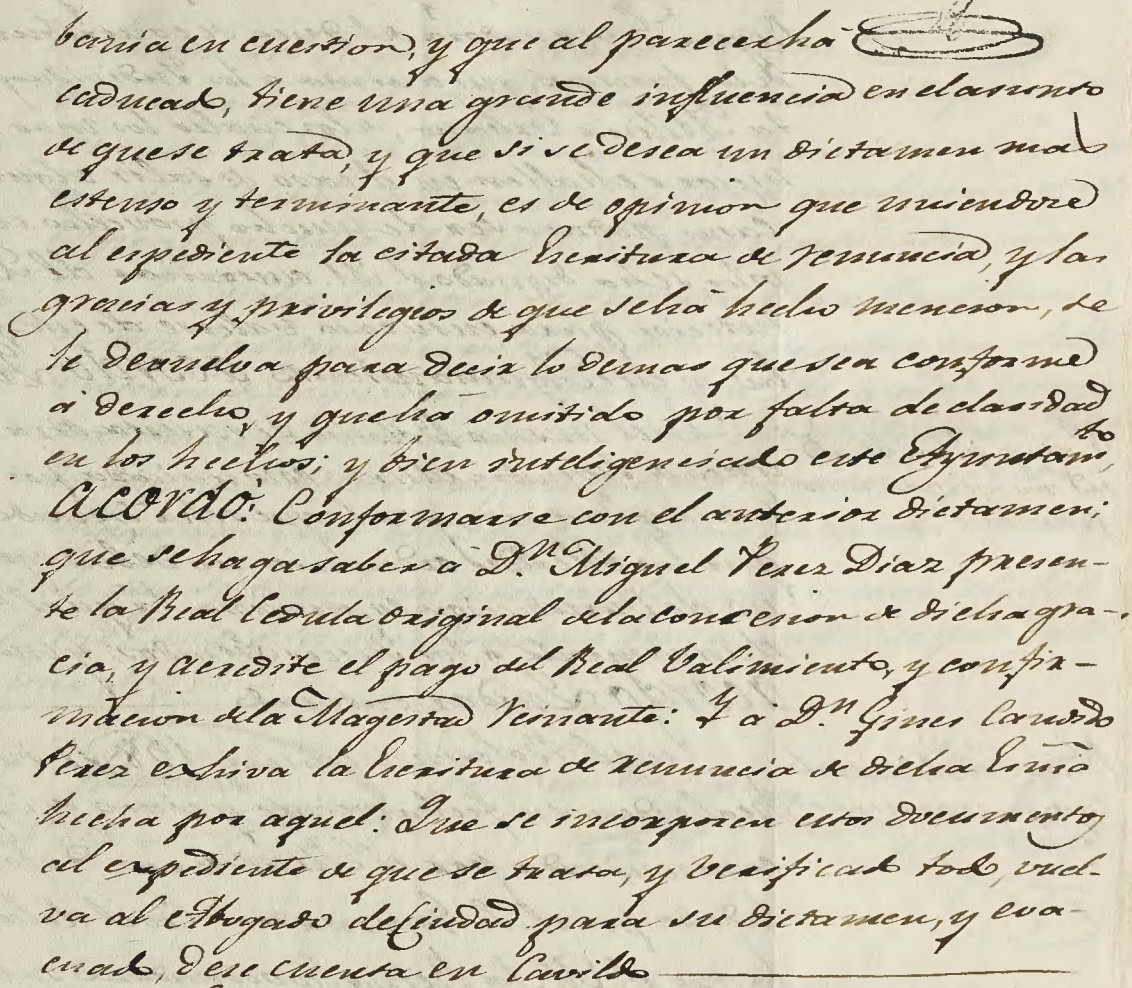 bania en cuestion, y que al parecer há
caducado, tiene una grande influencia en el asunto
de que se trata, y que si se desea un dictamen mas
estenso y terminante, es de opinion que uniendose
al espediente la citada Escritura de renuncia, y las
gracias y privilegios de que se há hecho mencion, se
le devuelva para decir lo demas que sea conforme
á derecho, y que há omitido por falta de claridad
en los hechos; y bien inteligenciado este Ayuntam.to,
Acordó: Conformarse con el anterior dictamen;
que se haga saber á D.n Miguel Perez Diaz presen-
te la Real Cedula original de la concesion de dicha gra-
cia, y acredite el pago del Real Valimiento, y confir-
macion de la Magestad Reinante: Y á D.n Gines Candido
Perez exhiva la Escritura de renuncia de dicha Esnia
hecha por aquel: Que se incorporen estos documentos
al expediente de que se trata, y verificado todo, vuel-
va al Abogado de Ciudad para su dictamen, y eva-
cuado, dese cuenta en Cavildo